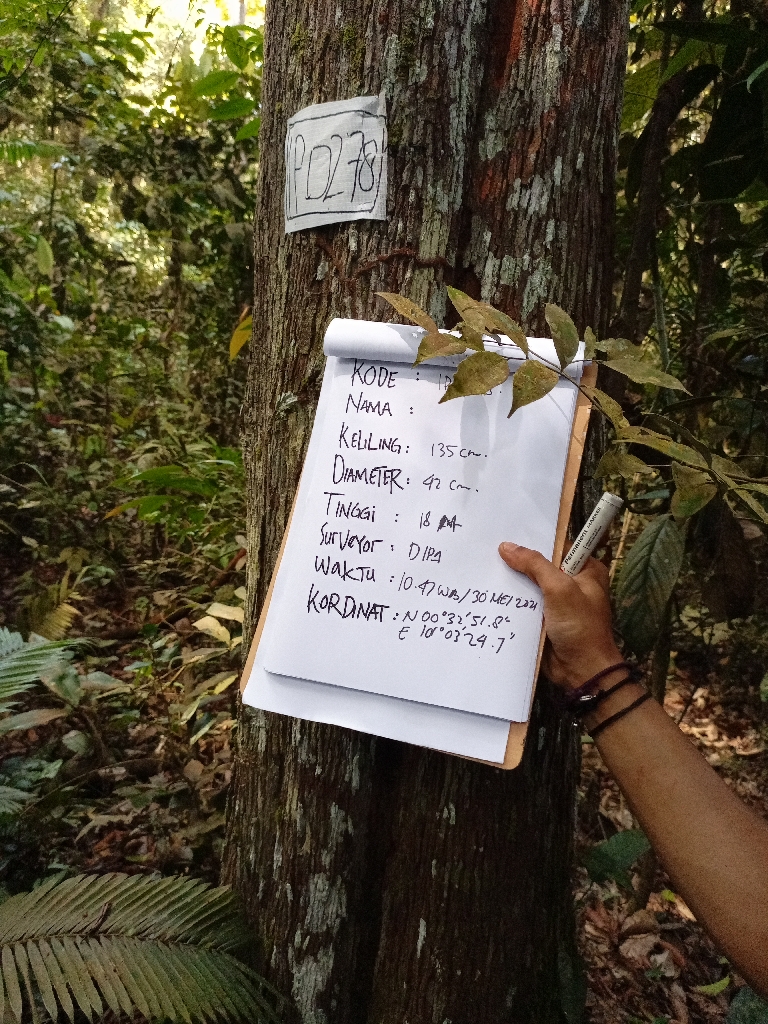 IP0278
KODE :
NAMA :
KELILING : 135 cm.
DIAMETER : 42 cm.
TINGGI : 18 M
SURVEYOR : DIPA
WAKTU : 10.47 WIB / 30 MEI 2021
KORDINAT : N 00°32'51.8"
E 101°03'24.7"
PERMANENT MARKER